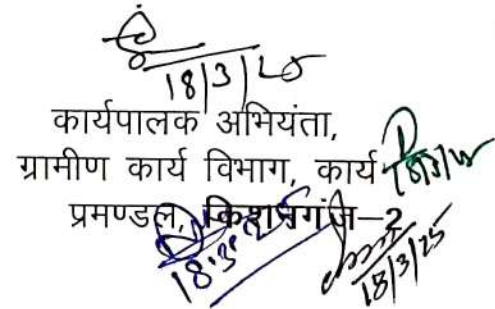 18/3/25
कार्यपालक अभियंता,
ग्रामीण कार्य विभाग, कार्य
18/3/25
प्रमण्डल, किशनगंज-2
18.3.25
18/3/25